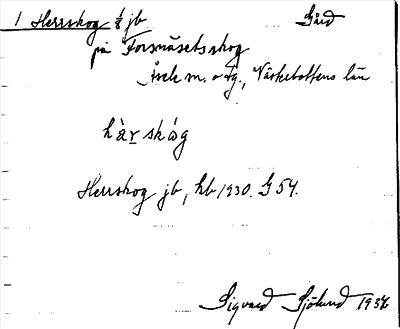 1 Herrskog ⅛ jb Gård
på Forsnäsets skog
Åsele m. o tg., Västerbottens län
hàr skòg
Herrskog jb, hb 1930. G 54.
Sigvard Sjölund 1936